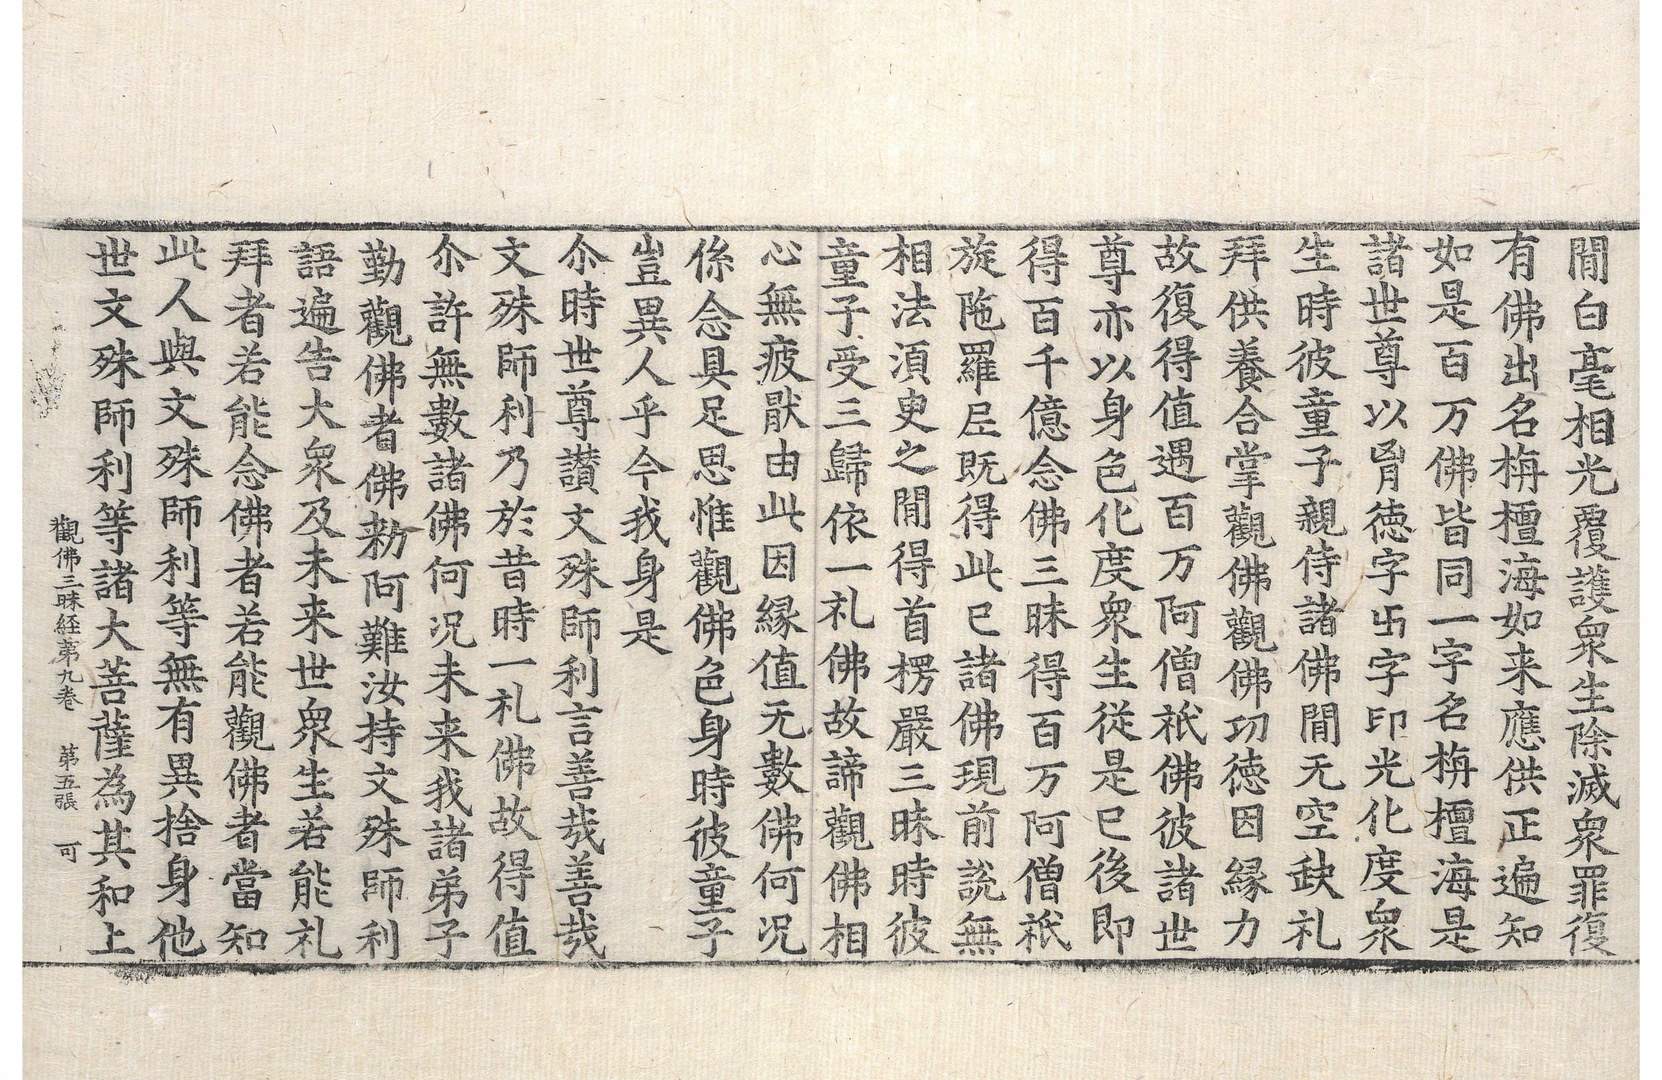 間白毫相光覆護衆生除滅衆罪復
有佛出名栴檀海如来應供正遍知
如是百万佛皆同一字名栴檀海是
諸世尊以胷徳字卐字印光化度衆
生時彼童子親侍諸佛間无空缺礼
拜供養合掌觀佛觀佛功徳因縁力
故復得值遇百万阿僧祇佛彼諸世
尊亦以身色化度衆生從是已後即
得百千億念佛三昧得百万阿僧祇
旋陁羅尼既得此已諸佛現前說無
相法湏臾之間得首楞嚴三昧時彼
童子受三歸依一礼佛故諦觀佛相
心無疲猒由此因縁值无數佛何况
係念具足思惟觀佛色身時彼童子
豈異人乎今我身是
尒時世尊讃文殊師利言善㢤善㢤
文殊師利乃於昔時一礼佛故得值
尒許無數諸佛何况未来我諸弟子
勤觀佛者佛勑阿難汝持文殊師利
語遍告大衆及未来世衆生若能礼
拜者若能念佛者若能觀佛者當知
此人與文殊師利等無有異捨身他
世文殊師利等諸大菩薩為其和上
觀佛三昧経第九卷 第五張 可